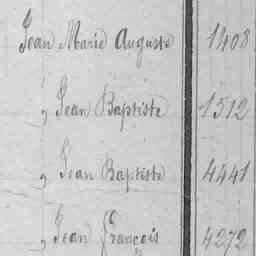 Jean Marie Auguste 1408
" Jean Baptiste 1512
" Jean Baptiste 4441
" Jean François 4272